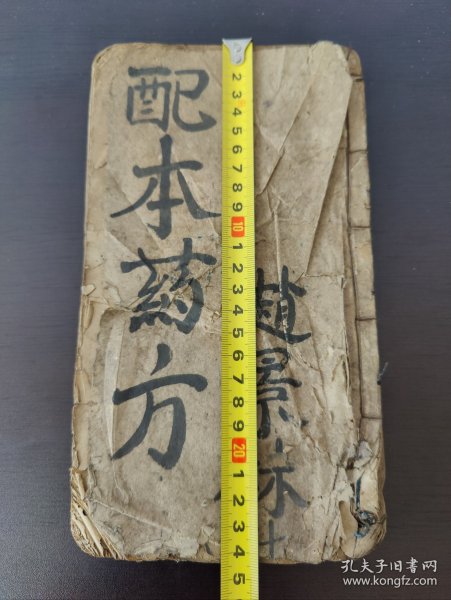 配本药方
趙景
2 3 4 5 6 7 8 9 10 1 2 3 4 5 6 7 8 9 20 1 2 3 4 5
孔夫子旧书网
www.kongfz.com